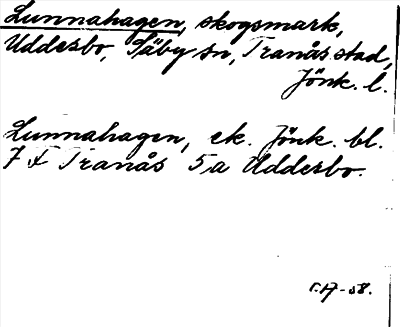 Lunnahagen, skogsmark,
Uddesbo, Säby sn, Tranås stad,
Jönk. l.
Lunnahagen, ek. Jönk. bl.
7 Tranås 5a Uddesbo.
-58.